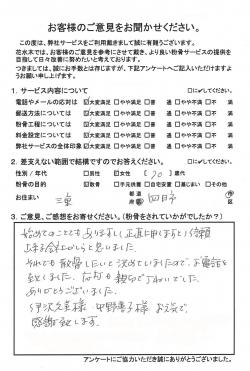 お客様のご意見をお聞かせください。
この度は、弊社サービスをご利用戴きまして誠に有難うございます。
花水木では、お客様のご意見を参考にさせて戴き、より良い粉骨サービスの提供を
目指して日々改善に努めたいと考えております。
つきましては、誠にお手数とは存じますが、下記アンケートへご記入いただけますよ
うお願い申し上げます。
1. サービス内容について □に✓してください。
電話やメールの応対は ☑大変満足 □やや満足 □普 通 □やや不満 □不 満
郵送方法については ☑大変満足 □やや満足 □普 通 □やや不満 □不 満
粉骨工程については ☑大変満足 □やや満足 □普 通 □やや不満 □不 満
料金設定については ☑大変満足 □やや満足 □普 通 □やや不満 □不 満
弊社サービスの全体印象 ☑大変満足 □やや満足 □普 通 □やや不満 □不 満
2. 差支えない範囲で結構ですのでお答えください。 □に✓してください。
性別/年代 □男性 ☑女性 ( 70 )歳代
粉骨の目的 ☑散骨 □手元供養 □自宅安置 □墓じまい □その他
お住まい 三重 都道府県 四日市 市
3. ご意見、ご感想をお寄せください。(粉骨をされていかがでしたか?)
始めてのことでもあり
正直
と思いました
それでも散骨したいと決めていましたので、お電話を
致しました
ありがとうございました。
感謝致します。
アンケートにご協力いただき誠にありがとうございました。